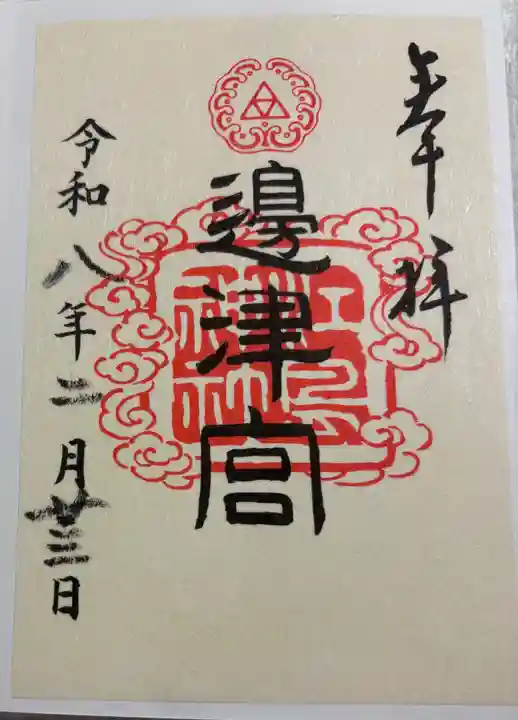 奉拝
邊津宮
令和八年二月廿三日